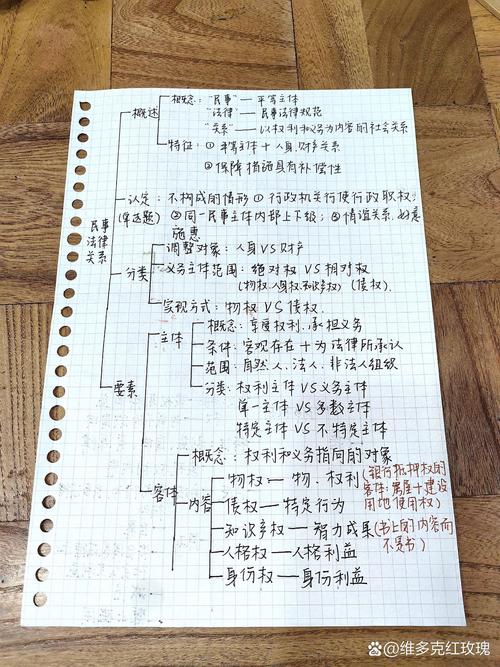 概念："民事"—平等主体
概述 "法律"—民事法律规范
"关系"—以权利和义务为内容的社会关系
特征：①平等主体+人身、财产关系
②保障措施具有补偿性
认定：不构成的情形 ①行政机关行使行政职权；
(单选题) ②同一民事主体内部上下级；③情谊关系，好意
施惠
民事法律关系
调整对象：人身VS财产
分类 义务主体范围：绝对权 VS 相对权
(物权、人身权、知识产权) (债权)
实现方式：物权 VS 债权
要素
主体 概念：享受权利、承担义务
条件：客观存在+为法律所承认
范围：自然人、法人、非法人组织
分类：权利主体VS义务主体
单一主体 VS 多数主体
特定主体 VS 不特定主体
客体
概念：权利和义务指向的对象
内容
物权—物、权利(银行抵押权的
客体：房屋+建设
用地使用权)
债权—特定行为
知识产权—智力成果(书上的内容而
不是书)
人格权—人格利益
身份权—身份利益
百家号/维多克红玫瑰